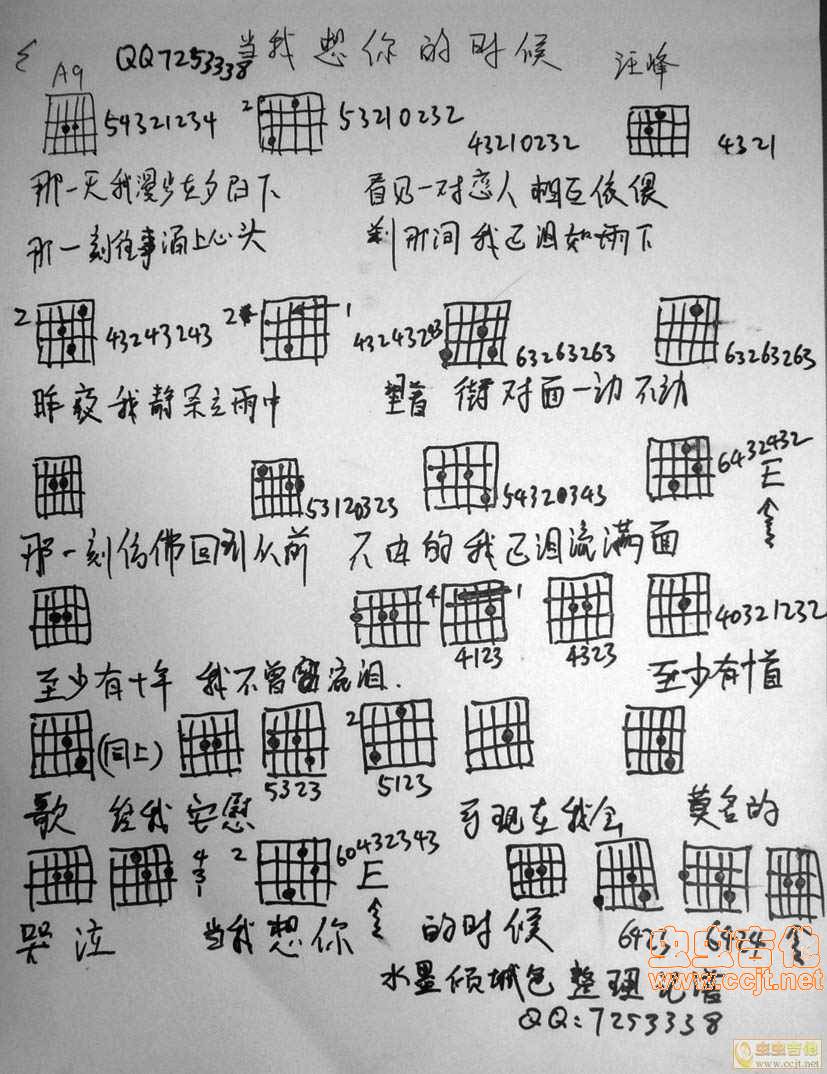 A9 QQ7253338 当我想你的时候 汪峰
54321234 2 53210232 43210232 4321
那一天我漫步在夕阳下 看见一对恋人相互依偎
那一刻往事涌上心头 刹那间我已泪如雨下
2 43243243 2 1 43243243 63263263 63263263
昨夜我静呆立雨中 望着街对面一动不动
53120323 54320343 6432432
E
那一刻仿佛回到从前 不由的我已泪流满面
4 1 4123 4323 40321232
至少有十年 我不曾流泪. 至少有十首
(同上) 5323 2 5123
歌 给我安慰 可现在我会 莫名的
4 3 1 2 60432343
E
哭泣 当我想你 的时候 6423 6424
虫虫吉他
www.ccjt.net
水墨倾城色 整理
QQ:7253338
虫虫吉他
www.ccjt.net